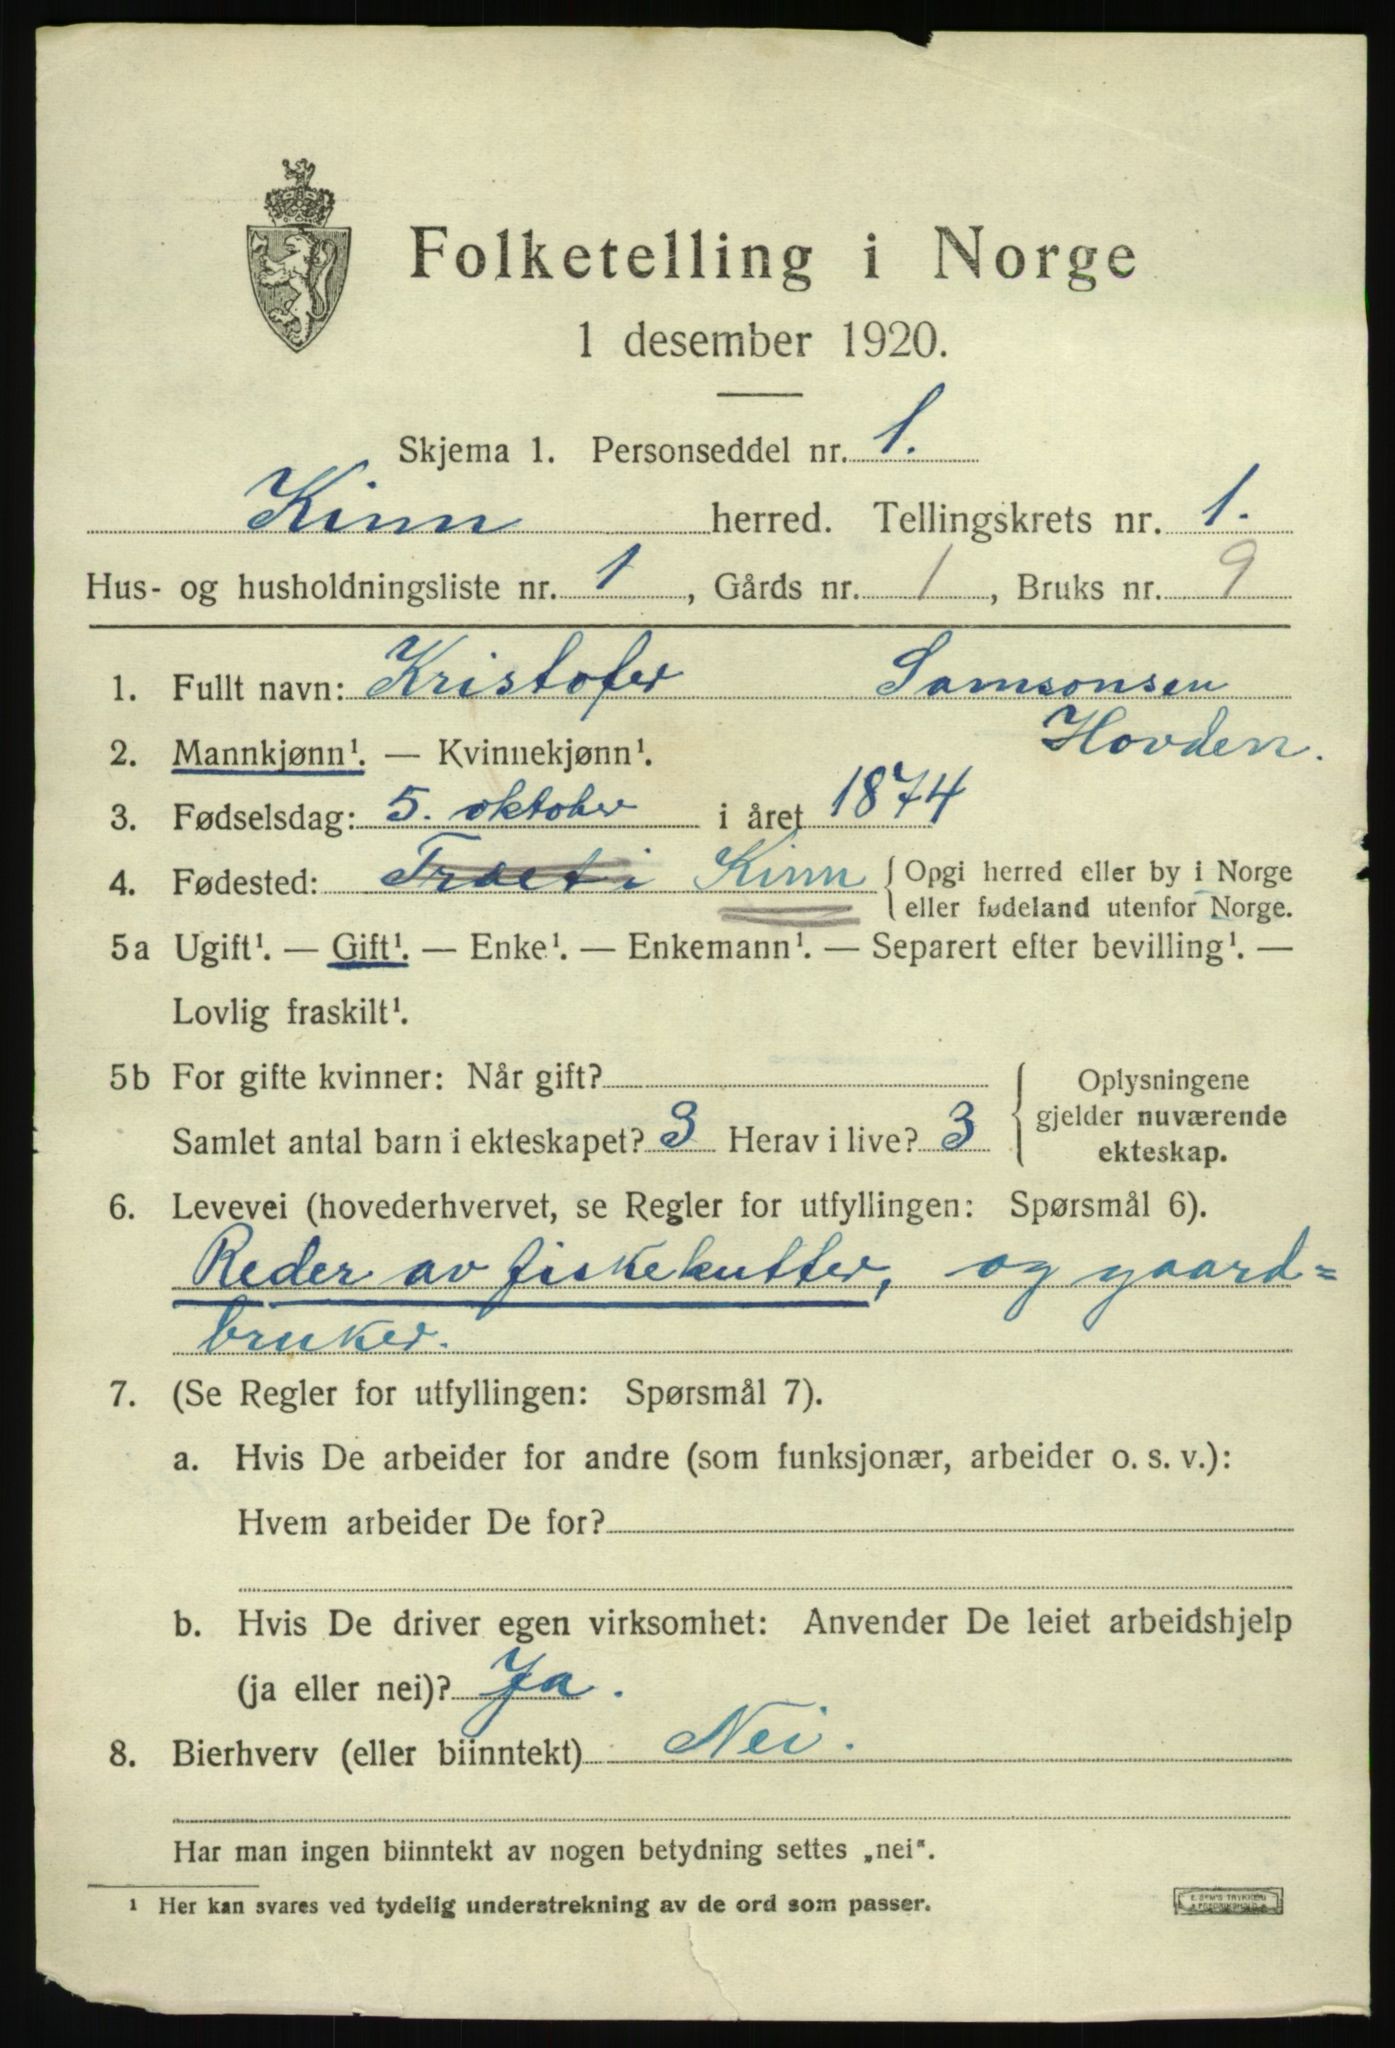 Folketelling i Norge
1 desember 1920.
Skjema 1. Personseddel nr. 1.
Kinn herred. Tellingskrets nr. 1.
Hus- og husholdningsliste nr. 1, Gårds nr. 1, Bruks nr. 9
1. Fullt navn: Kristofer Samsonsen
Hovden.
2. Mannkjønn¹. — Kvinnekjønn¹.
3. Fødselsdag: 5. oktober i året 1874
4. Fødested: Træet i Kinn { Opgi herred eller by i Norge
eller fødeland utenfor Norge.
5a Ugift¹. — Gift¹. — Enke¹. — Enkemann¹. — Separert efter bevilling¹. —
Lovlig fraskilt¹.
5b For gifte kvinner: Når gift?
Samlet antal barn i ekteskapet? 3 Herav i live? 3
{ Oplysningene
gjelder nuværende
ekteskap.
6. Levevei (hovederhvervet, se Regler for utfyllingen: Spørsmål 6).
Reder av fiskekutter, og gaard=
bruker.
7. (Se Regler for utfyllingen: Spørsmål 7).
a. Hvis De arbeider for andre (som funksjonær, arbeider o. s. v.):
Hvem arbeider De for?
b. Hvis De driver egen virksomhet: Anvender De leiet arbeidshjelp
(ja eller nei)? Ja.
8. Bierhverv (eller biinntekt) Nei.
Har man ingen biinntekt av nogen betydning settes „nei“.
¹ Her kan svares ved tydelig understrekning av de ord som passer.